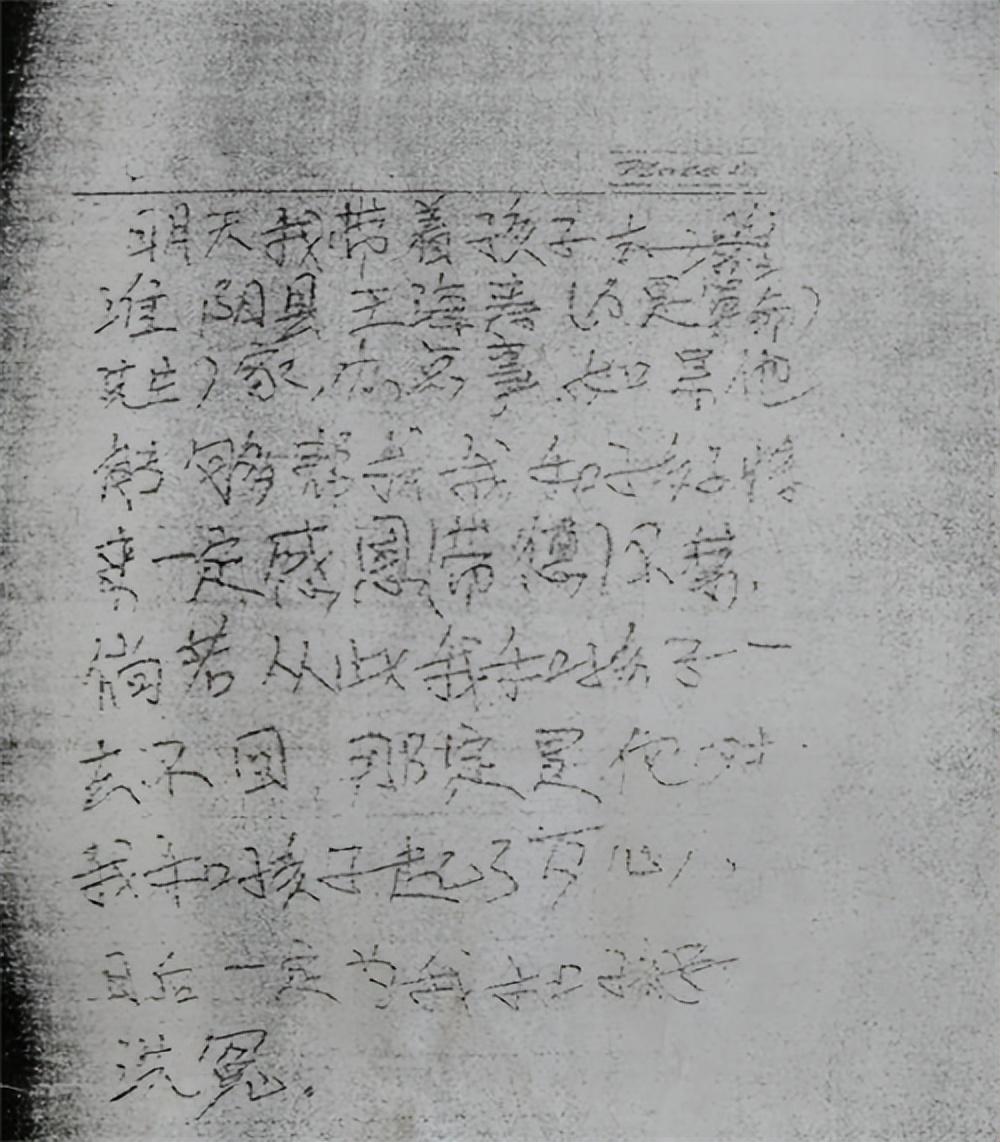 明天我带着孩子去
淮阴县王海涛(
先生)家,办点事,如果他
能够帮我我和孩子将
一定感恩带德不

倘若从此我和孩子一
去不回 那定是他对
我和孩子起了歹心,
日后一定为我和孩子
洗冤.